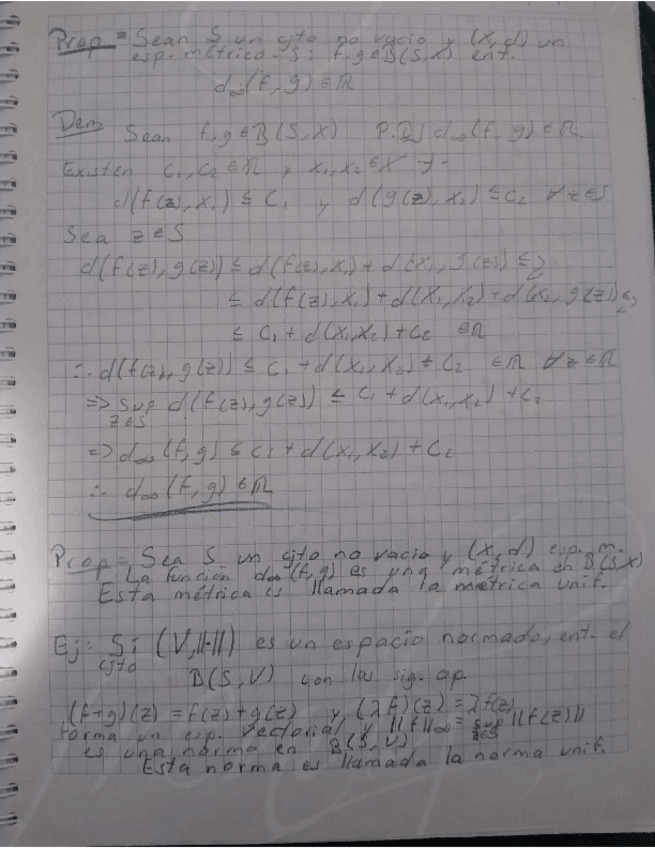 Prop = Sean S un cjto no vacio y (X, d) un
esp. métrico. Si f, g ∈ B(S, X) ent.
d∞(f, g) ∈ ℝ
Dem Sean f, g ∈ B(S, X) P.D. d∞(f, g) ∈ ℝ
Existen c₁, c₂ ∈ ℝ y x₁, x₂ ∈ X
d(f(z), x₁) ≤ c₁ y d(g(z), x₂) ≤ c₂ ∀ z ∈ S
Sea z ∈ S
d(f(z), g(z)) ≤ d(f(z), x₁) + d(x₁, g(z)) ≤
≤ d(f(z), x₁) + d(x₁, x₂) + d(x₂, g(z)) ≤
≤ c₁ + d(x₁, x₂) + c₂ ∈ ℝ
∴ d(f(z), g(z)) ≤ c₁ + d(x₁, x₂) + c₂ ∈ ℝ ∀ z ∈ ℝ
⇒ sup d(f(z), g(z)) ≤ c₁ + d(x₁, x₂) + c₂
z ∈ S
⇒ d∞(f, g) ≤ c₁ + d(x₁, x₂) + c₂
∴ d∞(f, g) ∈ ℝ
Prop = Sea S un cjto no vacio y (X, d) esp. m.
La función d∞(f, g) es una métrica en B(S, X)
Esta métrica es llamada la métrica unif.
Ej: Si (V, ||·||) es un espacio normado, ent. el
cjto B(S, V) con las sig. op.
(f+g)(z) = f(z) + g(z) y (λf)(z) = λf(z)
forma un esp. vectorial y ||f||∞ = sup ||f(z)||
z∈S
es una norma en B(S, V)
Esta norma es llamada la norma unif.